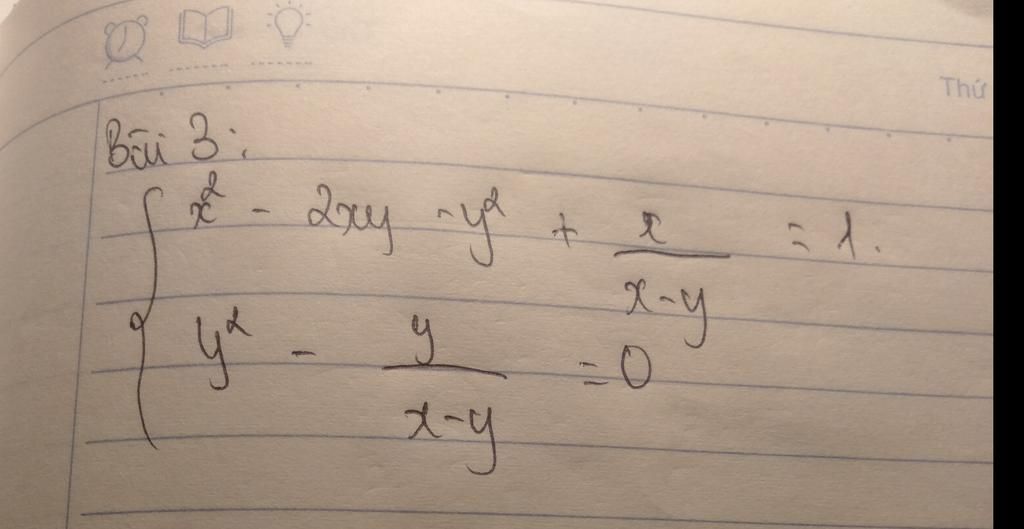 Thứ
Bài 3:
x² - 2xy - y² + x/(x-y) = 1.
y² - y/(x-y) = 0